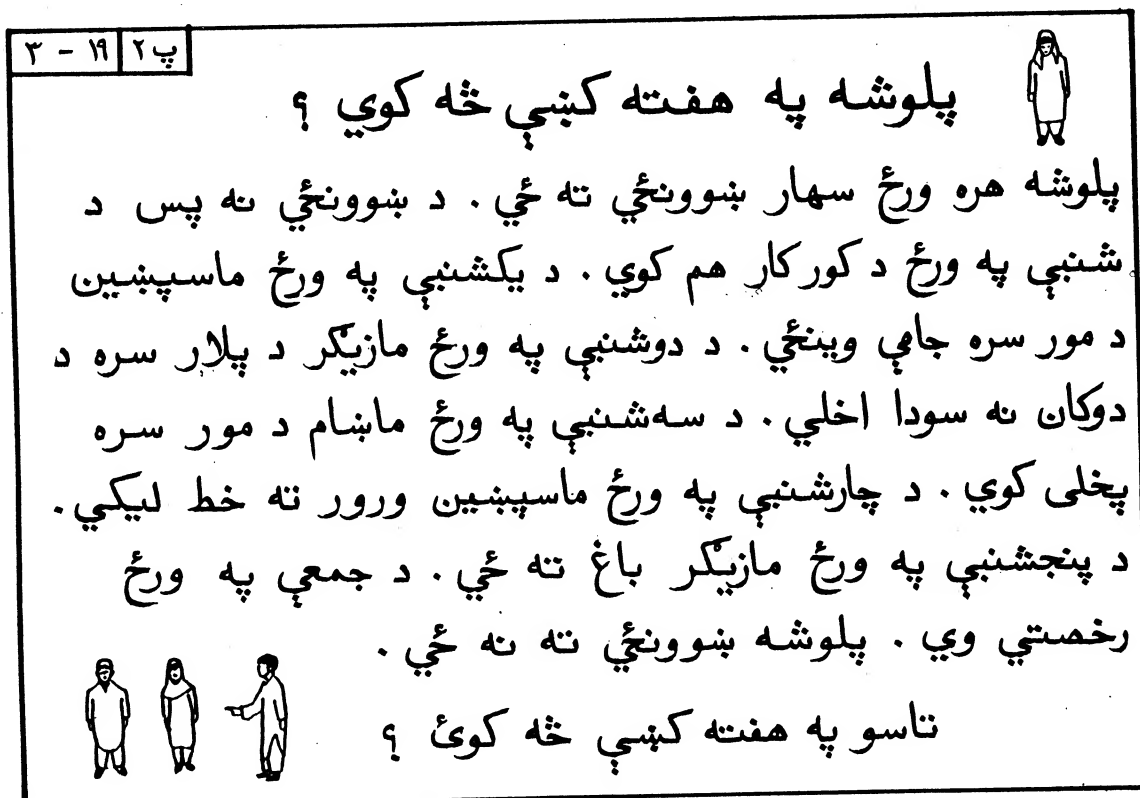 پ ۲ ۱۹ - ۳
پلوشه په هفته کښې څه کوي ؟
پلوشه هره ورځ سهار ښوونځي ته ځي . د ښوونځي نه پس د
شنبې په ورځ د کور کار هم کوي . د یکشنبې په ورځ ماسپښین
د مور سره جامې وینځي . د دوشنبې په ورځ مازیګر د پلار سره د
دوکان نه سودا اخلي . د سه‌شنبې په ورځ ماښام د مور سره
پخلی کوي . د چارشنبې په ورځ ماسپښین ورور ته خط لیکي .
د پنجشنبې په ورځ مازیګر باغ ته ځي . د جمعې په ورځ
رخصتي وي . پلوشه ښوونځي ته نه ځي .
تاسو په هفته کښې څه کوئ ؟